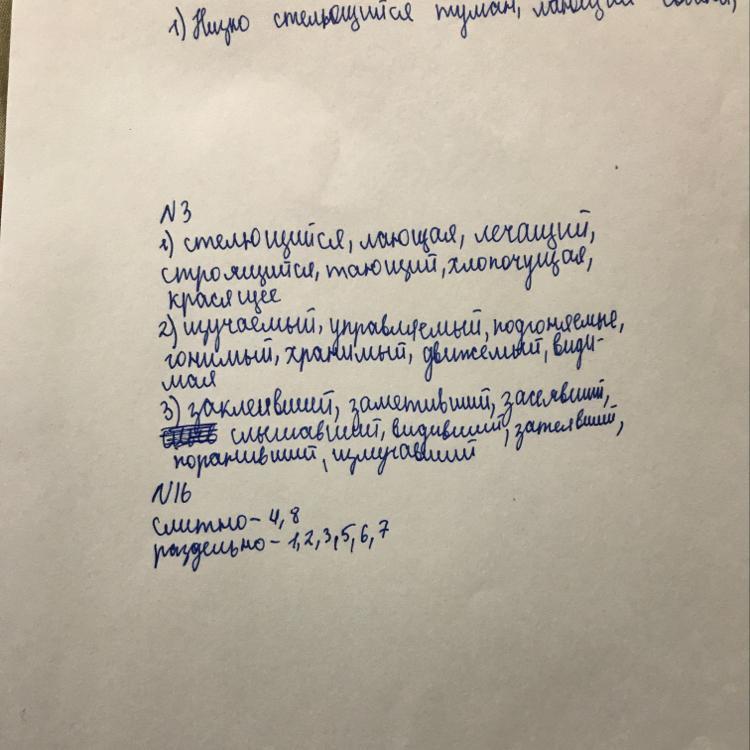 1) Низко стелющийся туман, лающая собака,
N3
1) стелющийся, лающая, лечащий,
строящийся, тающий, хлопочущая,
красящее
2) изучаемый, управляемый, подгоняемые,
гонимый, хранимый, движемый, види-
мая
3) заклеивший, заметивший, засеявший,
слышавший, видивший, затеявший,
поранивший, измучавший
N16
слитно – 4, 8
раздельно – 1, 2, 3, 5, 6, 7